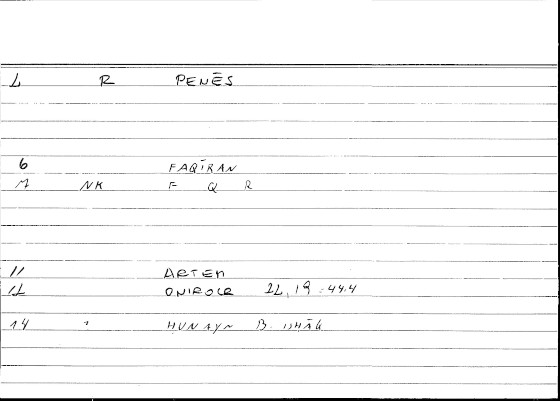 L R PENĒS
6 FAQĪRAN
M NK F Q R
11 ARTEM
12 ONIROCR 22, 19 : 44.4
14 " HUNAYN B. ISHĀQ